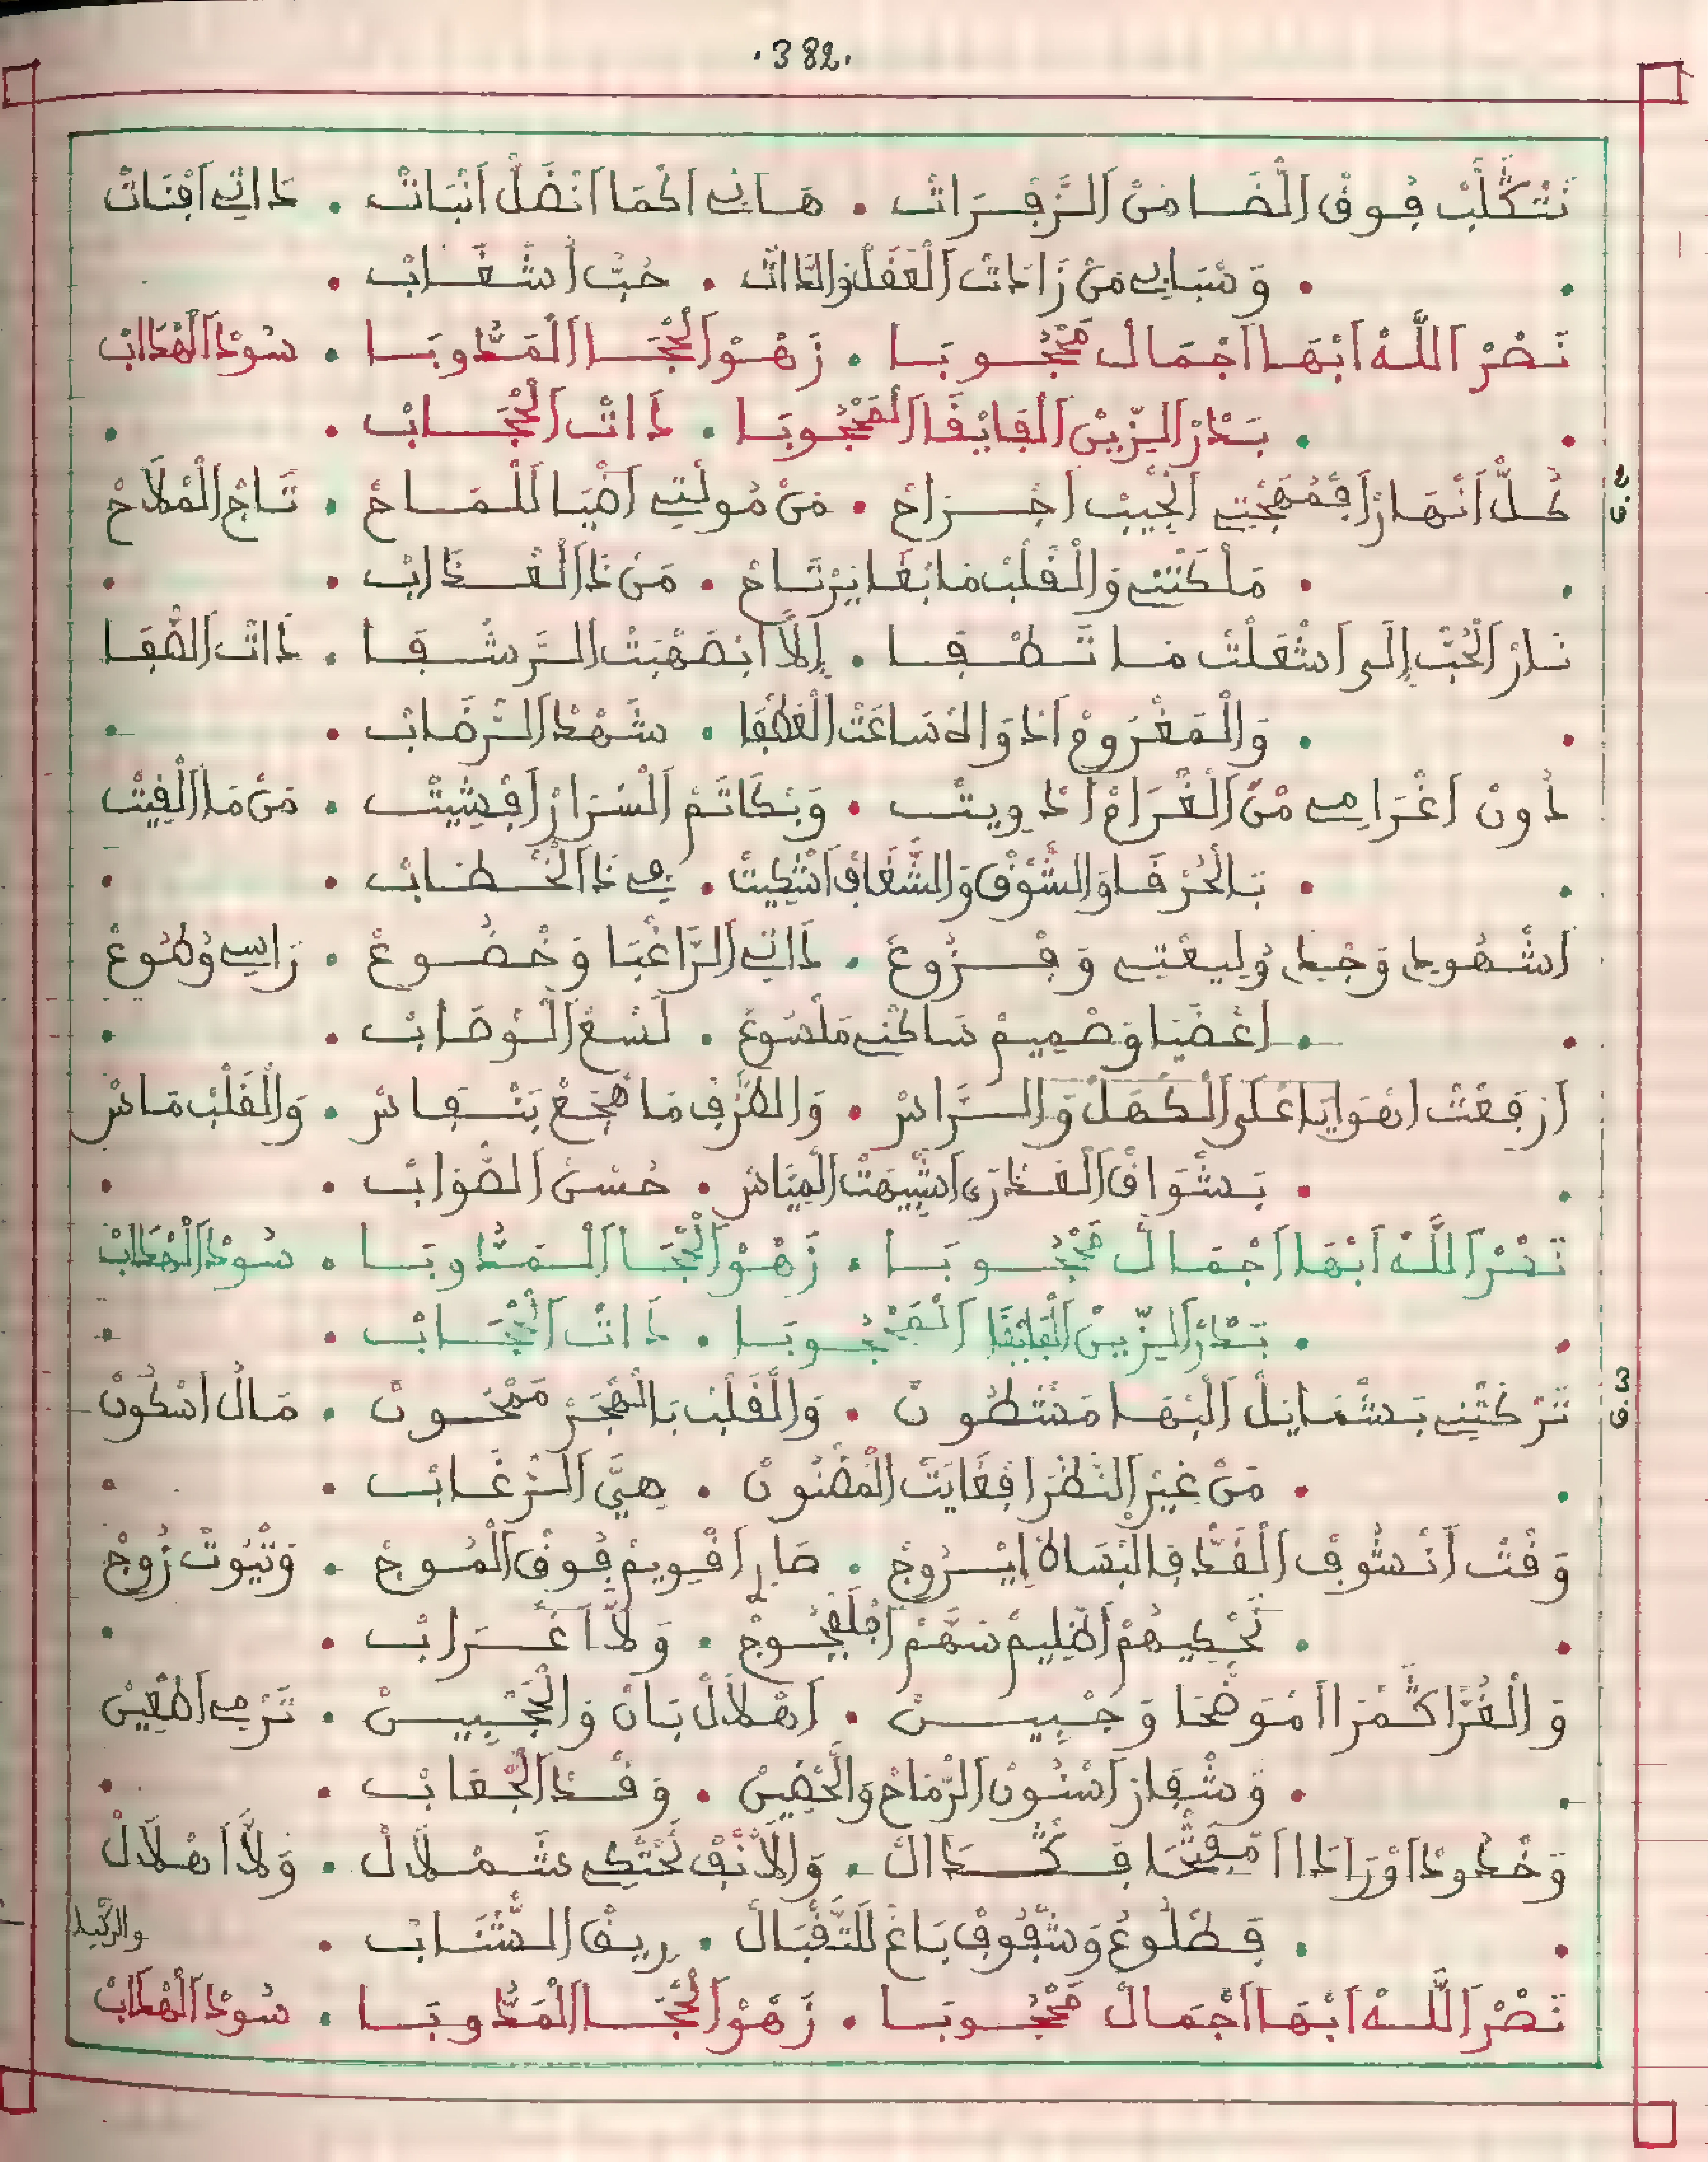 .382.
نَتْڭَلَّبْ فُوقْ الَّضَا مَنْ الزَّفْرَاتْ . هَانِي اَكْمَا اَنْضَلْ اَنْبَاتْ . ذَاتِي اَفْنَاتْ
. وَسْبَابِي مَنْ زَادَتْ الْعَقْلْ وَالذَّاتْ . حُبّْ اَشْغَابْ .
نَصْرْ اَللَّهْ اَبْهَا اَجْمَالْ مَحْجُوبَا . زَهْوْ اَلْحْجَا الْمَدُّوبَا . سُودْ اَلْهْدَابْ
. بَدْرْ اَلزِّينْ اَلْفَايْقَا اَلْمَحْجُوبَا . ذَاتْ اَلْحْجَابْ .
كُلّْ اَنْهَارْ اَفْمُهْجْتِي اَنْجِيبْ اَجْرَاحْ . مَنْ مُولْتِي اَضْيَا اللْمَاحْ . تَاجْ الْمْلَاحْ
. مَلْكَتْنِي وَالْقَلْبْ مَا بْغَا يَرْتَاحْ . مَنْ ذَا اَلْعْذَابْ .
نَارْ اَلْحُبّْ إِلَى اَشْعَلْتْ مَا تَطْفَا . إِلَّا اَبْصَهْبَتْ الرَّشْفَا . ذَاتْ الصّْفَا
. وَالْمَغْرُومْ اَدْوَاهْ سَاعَتْ الْعَطْفَا . شَهْدْ اَلرّْضَابْ .
دُونْ اَغْرَامِي مْنْ اَلْغْرَامْ اَدْوِيتْ . وَنْكَاتَمْ اَلْسْرَارْ اَفْشِيتْ . مَنْ مَا اَلْقِيتْ
. بَالْحُرْقَا وَالشُّوقْ وَالشّْغَافْ اَشْكِيتْ . فِي ذَا اَلْخْطَابْ .
اَشْهُودِي وَجْدِي وُلِيعْتِي وَفْزُوعْ . ذَاتِي اَلرَّاغْبَا وَخْضُوعْ . رَاسِي وُطُوعْ
. اَعْضَيَا وَصْمِيمْ سَاكْنِي مَلْسُوعْ . لَسْعْ اَلْوْصَابْ .
اَرْفَعْتْ اَهْوَايَا عْلَى اَلْكْهَلْ وَالرَّاسْ . وَالطَّرْفْ مَا هْجَعْ بَنْعَاسْ . وَالْقَلْبْ مَاسْ
. بَشْوَاقْ اَلْعَذْرَى اَشْبِيهَتْ اَلْمِيَّاسْ . حُسْنْ اَلصّْوَابْ .
نَصْرْ اَللَّهْ اَبْهَا اَجْمَالْ مَحْجُوبَا . زَهْوْ اَلْحْجَا اَلْمَدُّوبَا . سُودْ اَلْهْدَابْ
. بَدْرْ اَلزِّينْ اَلْفَايْقَا اَلْمَحْجُوبَا . ذَاتْ اَلْحْجَابْ .
تَرْكَتْنِي بَشْمَايَلْ اَلْبْهَا مَشْطُونْ . وَالْقَلْبْ بَالْهْجَرْ مَمْحُونْ . مَالُ اَسْكُونْ
. مَنْ غِيرْ النَّظْرَا فْغَايَتْ الْمَضْنُونْ . هِيَّ اَلرّْغَابْ .
وَقْتْ اَنْشُوفْ اَلْقَدّْ فِالْبْسَاطْ إِيْرُوجْ . صَارِ اَقْوِيمْ فُوقْ اَلْمُوجْ . وَتْيُوتْ زُوجْ
. نَحْكِيهُمْ اَظْلِيمْ سَهَّمْ اَفْلَفْجُوجْ . وَلَّا اَغْرَابْ .
وَالْغُرَّا كَقْمَرَا اَمْوَضْحَا وَجْبِينْ . اَهْلَالْ بَانْ وَالْحَجْبِينْ . تَرْمِي اَطْعِينْ
. وَشْفَارْ اَسْنُونْ اَلرّْمَاحْ وَالْحْضِينْ . وَقْدْ اَلْجْعَابْ .
وَخْدُودْ اَوْرَادَا اَمْفَتْحَا فَكْدَالْ . وَالْأَنْفْ نَحْتْكِي شَمْلَالْ . وَلَّا اَهْلَالْ
. فَطْلُوعُ وَشْفُوفْ بَاغْ لَلتَّقْبَالْ . رِيقْ اَلشّْنَابْ .
نَصْرْ اَللَّهْ اَبْهَا اَجْمَالْ مَحْجُوبَا . زَهْوْ اَلْحْجَا اَلْمَدُّوبَا . سُودْ اَلْهْدَابْ